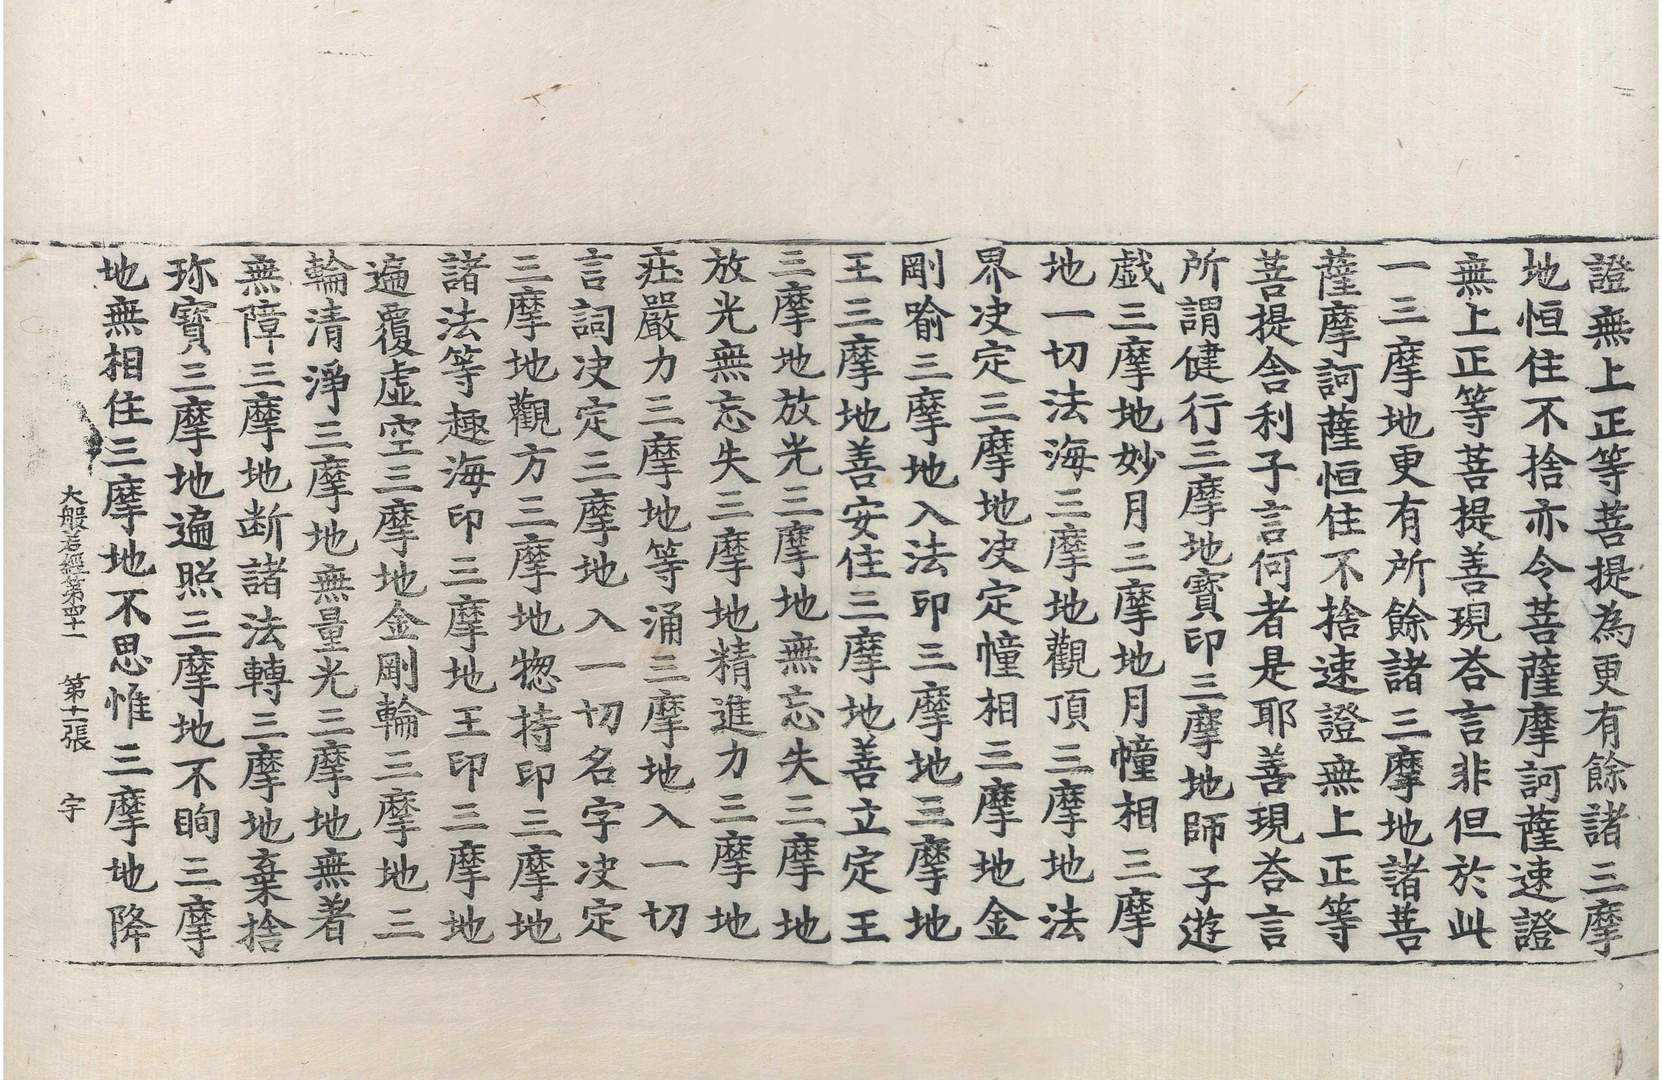 證無上正等菩提為更有餘諸三摩
地恒住不捨亦令菩薩摩訶薩速證
無上正等菩提善現荅言非但於此
一三摩地更有所餘諸三摩地諸菩
薩摩訶薩恒住不捨速證無上正等
菩提舍利子言何者是耶善現荅言
所謂健行三摩地寶印三摩地師子遊
戯三摩地妙月三摩地月幢相三摩
地一切法海三摩地觀頂三摩地法
界决定三摩地决定幢相三摩地金
剛喻三摩地入法印三摩地三摩地
王三摩地善安住三摩地善立定王
三摩地放光三摩地無忘失三摩地
放光無忘失三摩地精進力三摩地
莊嚴力三摩地等涌三摩地入一切
言詞决定三摩地入一切名字决定
三摩地觀方三摩地惣持印三摩地
諸法等趣海印三摩地王印三摩地
遍覆虛空三摩地金剛輪三摩地三
輪清淨三摩地無量光三摩地無著
無障三摩地断諸法轉三摩地棄捨
珎寶三摩地遍照三摩地不眴三摩
地無相住三摩地不思惟三摩地降
大般若經第四十一 第十一張 宇